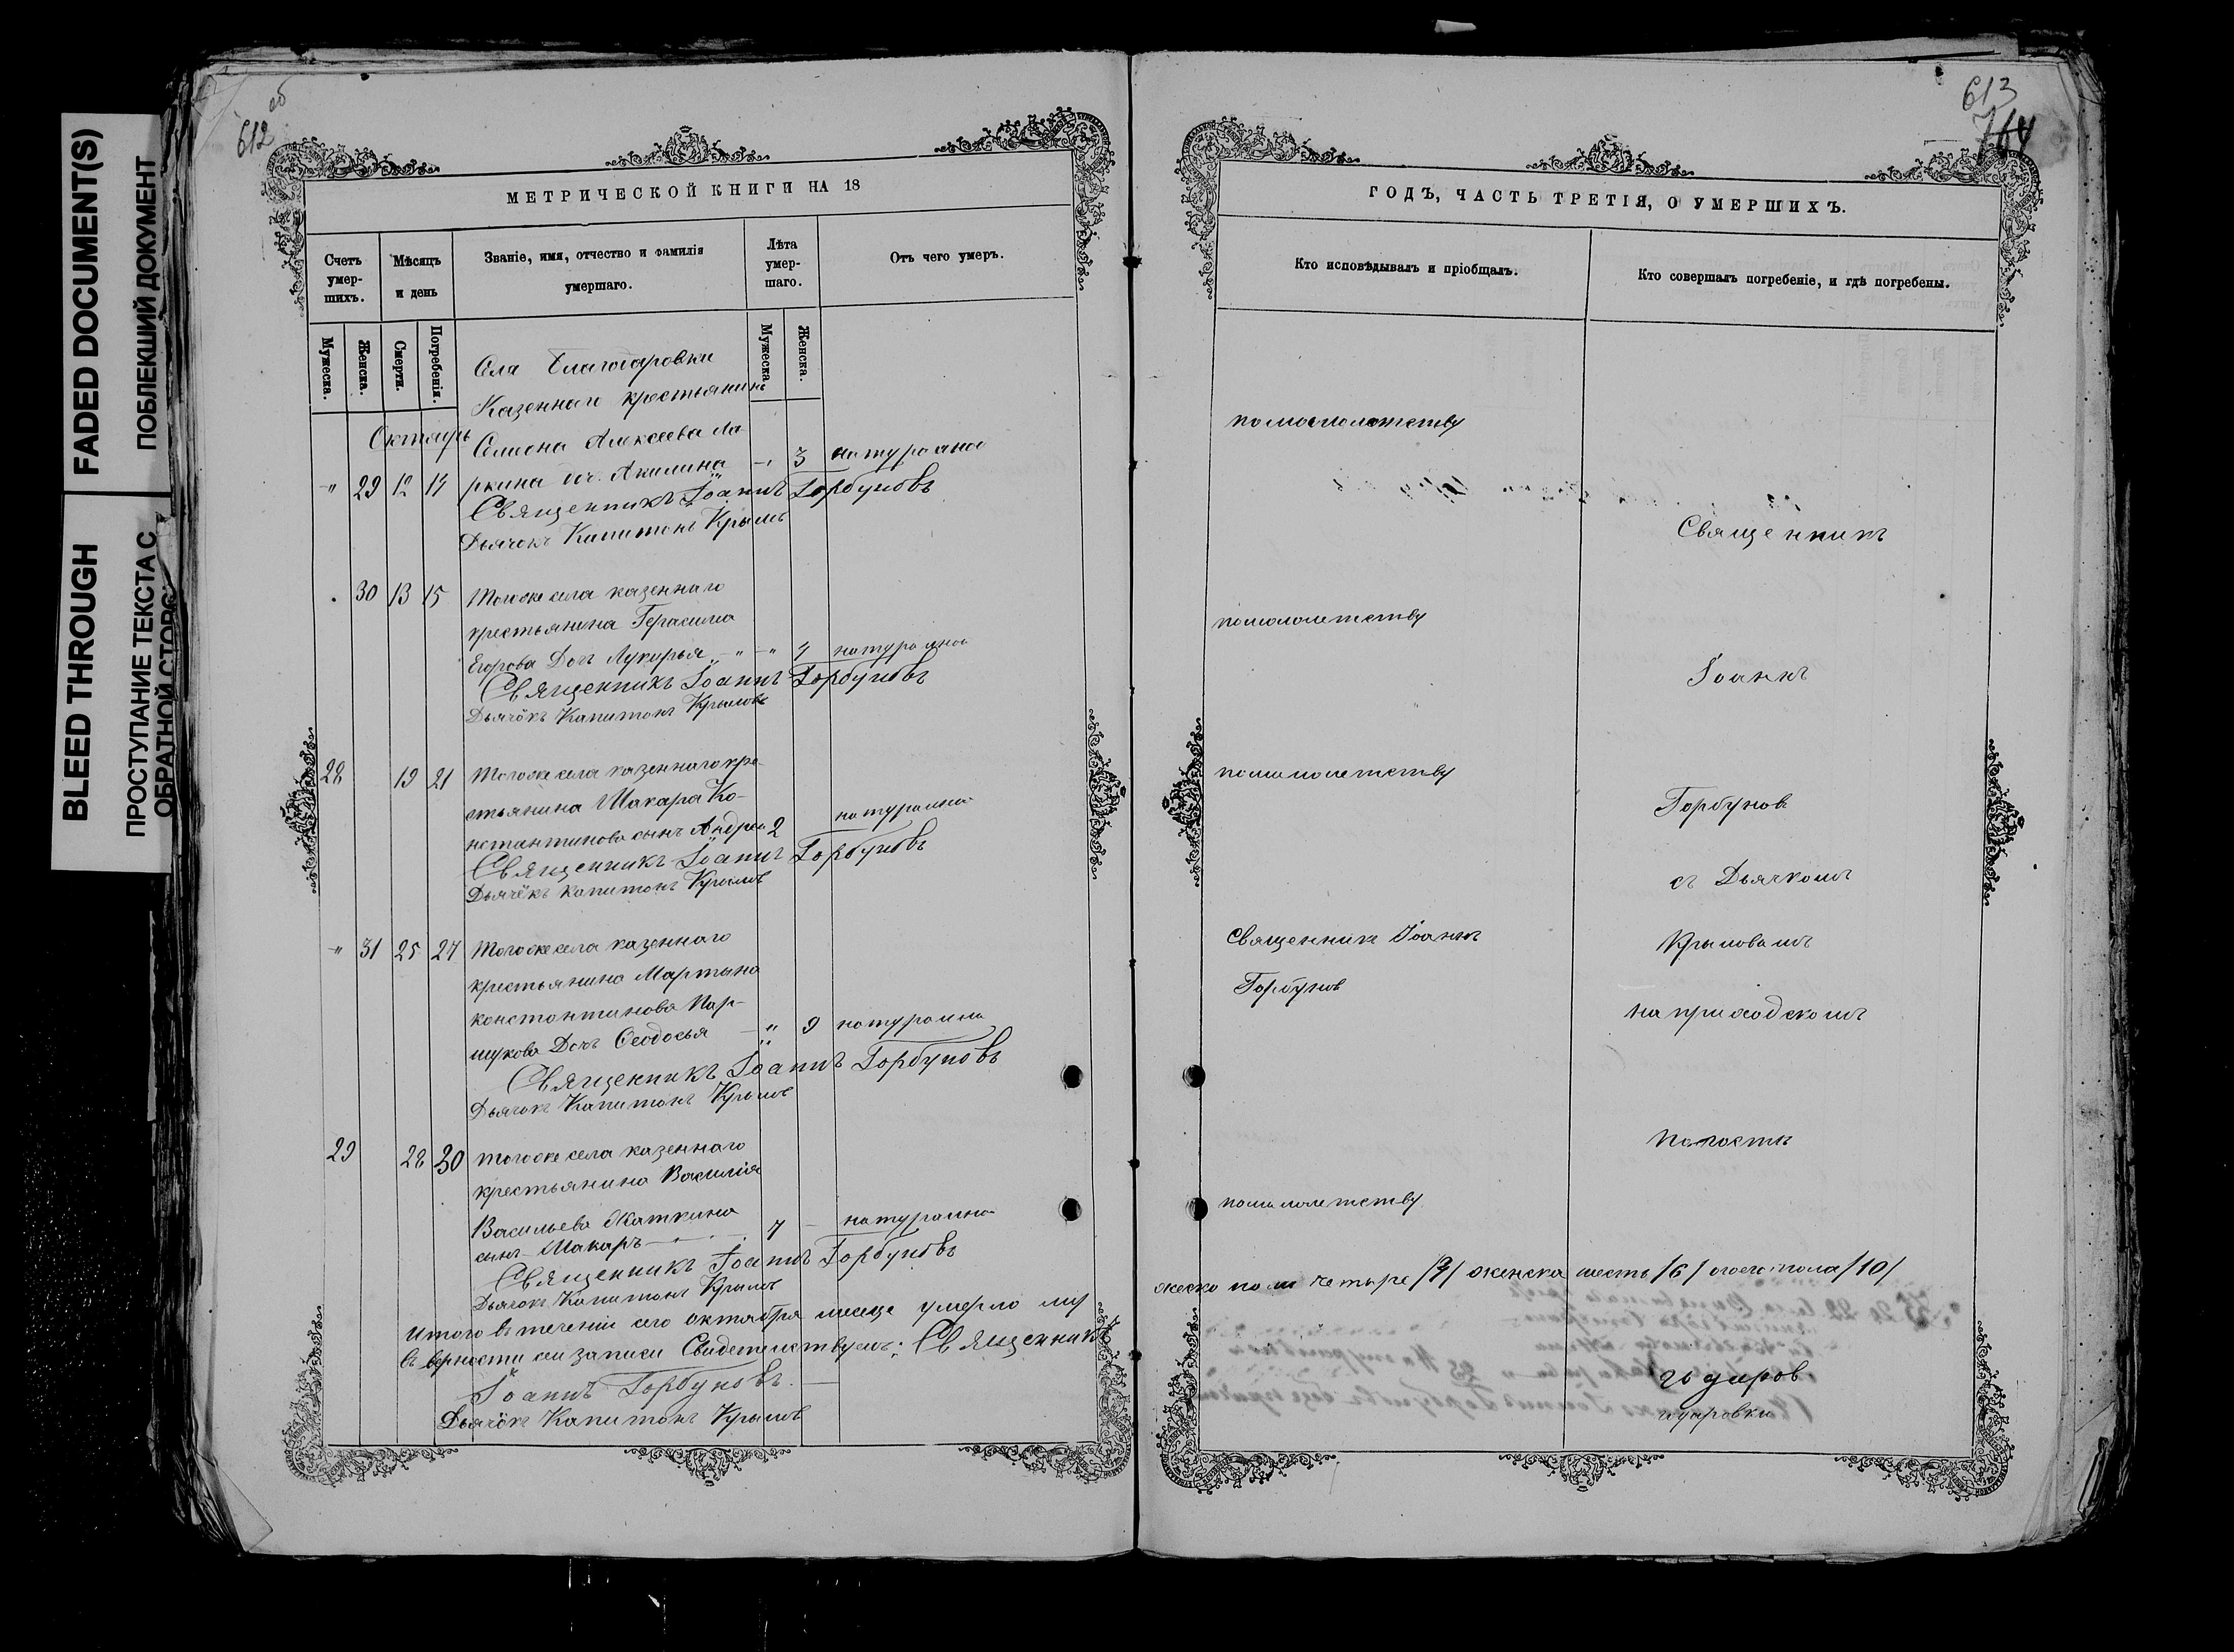 FADED DOCUMENT(S)
ПОБЛЕКШИЙ ДОКУМЕНТ
BLEED THROUGH
ПРОСТУПАНИЕ ТЕКСТА С
ОБРАТНОЙ
612 об
МЕТРИЧЕСКОЙ КНИГИ НА 18
Счетъ умер- шихъ.
Мѣсяцъ и день
Званіе, имя, отчество и фамилія умершаго.
Лѣта умер- шаго.
Отъ чего умеръ.
Мужеска. Женска. Смерти. Погребенія. Мужеска. Женска.
Села Благодаровки
Казеннаго крестьянина
Октябрь
Семена Алексеева Ла-
29 12 14 ркина доч. Акилина 3 натурально
Священникъ Іоаннъ Горбуновъ
Дьячокъ Капитонъ Крыловъ
30 13 15 Тогоже села казеннаго
крестьянина Герасима
Егорова Доч Лукирья 4 натурально
Священникъ Іоаннъ Горбуновъ
Дьячёкъ Капитонъ Крыловъ
28 19 21 Тогоже села казеннаго кре-
стьянина Макара Ко-
нстантинова сынъ Андреи 2 натурально
Священникъ Іоаннъ Горбуновъ
Дьячёкъ Капитонъ Крыловъ
31 25 27 Тогоже села казеннаго
крестьянина Мартына
Константинова Пар-
шукова Доч Феодосья 9 натурально
Священникъ Іоаннъ Горбуновъ
Дьячокъ Капитонъ Крыловъ
29 28 30 Тогоже села казеннаго
крестьянина Василія
Васильева Каткина
сынъ Макаръ 7 натурально
Священникъ Іоаннъ Горбуновъ
Дьячокъ Капитонъ Крыловъ
Итого въ теченіи сего октября месеце умерло му
въ верности сей записи Свидетельствуемъ: Священникъ
Іоаннъ Горбуновъ.
Дьячёкъ Капитонъ Крыловъ
613
764
ГОДЪ, ЧАСТЬ ТРЕТІЯ, О УМЕРШИХЪ.
Кто исповѣдывалъ и пріобщалъ.
Кто совершалъ погребеніе, и гдѣ погребены.
помалолетству
Священникъ
помалолетству
Іоаннъ
помалолетству
Горбунов
съ Дьячкомъ
Священник Іоаннъ
Крыловамъ
Горбунов
на приходскомъ
погостъ
помалолетству
жеска пола четыре /4/ женска шесть /6/ обоего пола /10/